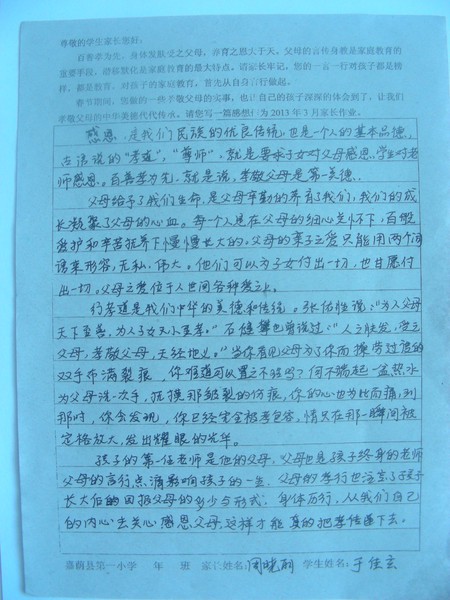 尊敬的学生家长您好：
百善孝为先，身体发肤受之父母，养育之恩大于天。父母的言传身教是家庭教育的
重要手段，潜移默化是家庭教育的最大特点。请家长牢记，您的一言一行对孩子都是榜
样，都是教育，对孩子的家庭教育，首先从自身言行做起。
春节期间，您做的一些孝敬父母的实事，也让自己的孩子深深的体会到了，让我们
孝敬父母的中华美德代代传承。请您写一篇感想代为2013年3月家长作业。
感恩，是我们民族的优良传统，也是一个人的基本品德。
古语说的“孝道”，“尊师”，就是要求子女对父母感恩，学生对老
师感恩。百善孝为先，就是说，孝敬父母是第一美德。
父母给予了我们生命，是父母辛勤的养育了我们，我们的成
长凝聚了父母的心血。每一个人是在父母的细心关怀下，百般
爱护和辛苦抚养下慢慢长大的，父母的亲子之爱只能用两个词
语来形容，无私、伟大。他们可以为子女付出一切，也甘愿付
出一切。父母之爱位于人世间各种爱之上。
行孝道是我们中华的美德和传统。张佑胜说：“为人父母
天下至善，为人子女天下至孝。” 曾说过：“人之肤发，受之
父母，孝敬父母，天经地义。”当你看见父母为了你而操劳过度的
双手布满裂痕，你难道可以置之不理吗？何不端起一盆热水
为父母洗一次手，抚摸那皱裂的伤痕，你的心也为此而痛，到
那时，你会发现，你已经完全被孝包容，情只在那一瞬间被
定格放大，发出耀眼的光华。
孩子的第一任老师是他的父母，父母也是孩子终身的老师
父母的言行点滴影响孩子的一生。父母的孝行也注定了孩子
长大后的回报父母的多少与形式。身体力行，从我们自己
的内心去关心感恩父母，这样才能真的把孝传递下去。
嘉荫县第一小学 年 班 家长姓名：周晓丽 学生姓名：于佳玄